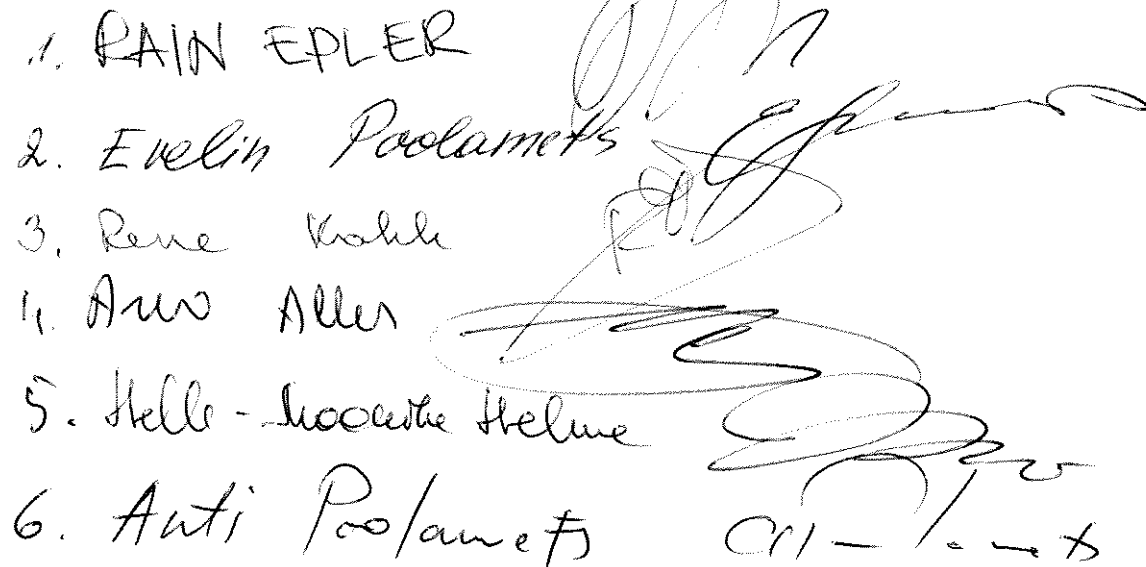 1. RAIN EPLER
2. Evelin Poolamets
3. Rene Kokk
4. Arvo Aller
5. Helle-Moonika Helme
6. Anti Poolamets